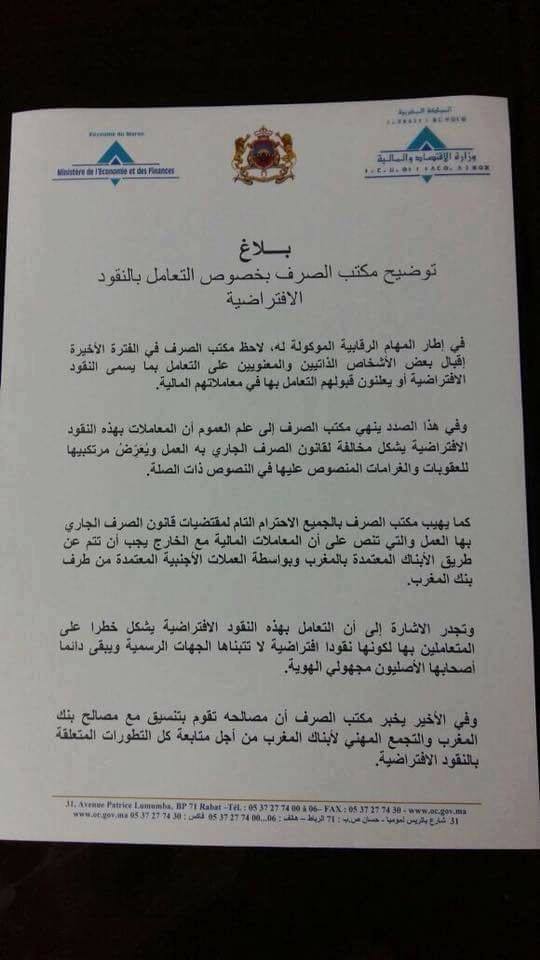 Royaume du Maroc
Ministère de l'Economie et des Finances
المملكة المغربية
وزارة الاقتصاد والمالية
بــلاغ
توضيح مكتب الصرف بخصوص التعامل بالنقود
الافتراضية
في إطار المهام الرقابية الموكولة له، لاحظ مكتب الصرف في الفترة الأخيرة
إقبال بعض الأشخاص الذاتيين والمعنويين على التعامل بما يسمى النقود
الافتراضية أو يعلنون قبولهم التعامل بها في معاملاتهم المالية.
وفي هذا الصدد ينهي مكتب الصرف إلى علم العموم أن المعاملات بهذه النقود
الافتراضية يشكل مخالفة لقانون الصرف الجاري به العمل ويُعَرِّضُ مرتكبيها
للعقوبات والغرامات المنصوص عليها في النصوص ذات الصلة.
كما يهيب مكتب الصرف بالجميع الاحترام التام لمقتضيات قانون الصرف الجاري
بها العمل والتي تنص على أن المعاملات المالية مع الخارج يجب أن تتم عن
طريق الأبناك المعتمدة بالمغرب وبواسطة العملات الأجنبية المعتمدة من طرف
بنك المغرب.
وتجدر الاشارة إلى أن التعامل بهذه النقود الافتراضية يشكل خطرا على
المتعاملين بها لكونها نقودا افتراضية لا تتبناها الجهات الرسمية ويبقى دائما
أصحابها الأصليون مجهولي الهوية.
وفي الأخير يخبر مكتب الصرف أن مصالحه تقوم بتنسيق مع مصالح بنك
المغرب والتجمع المهني لأبناك المغرب من أجل متابعة كل التطورات المتعلقة
بالنقود الافتراضية.
31, Avenue Patrice Lumumba, BP 71 Rabat –Tél. : 05 37 27 74 00 à 06– FAX : 05 37 27 74 30 - www.oc.gov.ma
31 شارع باتريس لمومبا - حسان ص.ب : 71 الرباط – هاتف : 06...00 74 27 37 05 فاكس : 30 74 27 37 05 www.oc.gov.ma